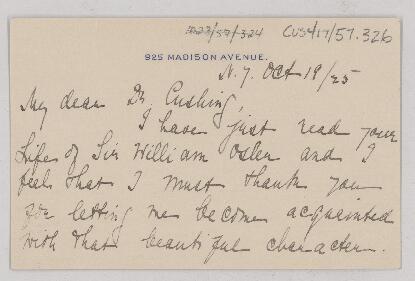 CUS417/57.326
925 MADISON AVENUE.
N.Y. Oct 19/25
My dear Dr. Cushing,
I have just read your
Life of Sir William Osler and I
feel that I must thank you
for letting me become acquainted
with that beautiful character.